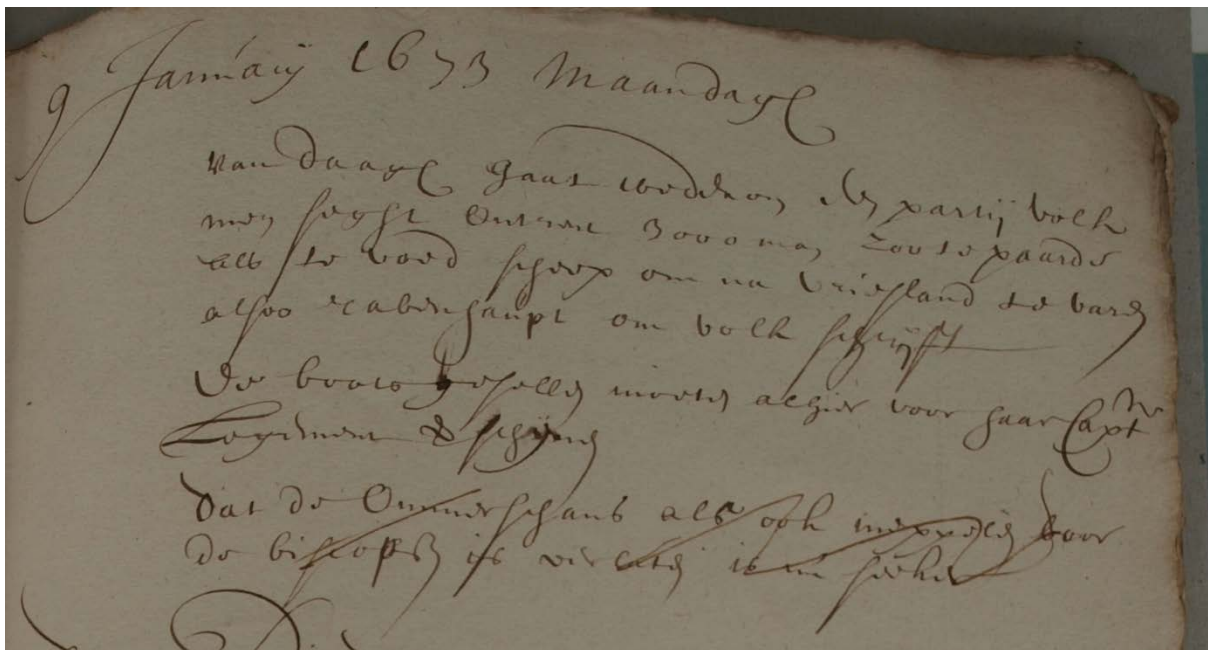 9 Januarij 1673 Maandagh
van daagh gaat wederom een partij volk
men seght omtrent 3000 man zoo te paarde
als te voed scheep om na Vriesland te varen
alsoo rabenhaupt om volk schrijft
De boots gesellen moeten alhier voor haar Capt
Logement
Dat de Ommerschans als ook meppelen door
de bisschopsen is verlaten is seeker